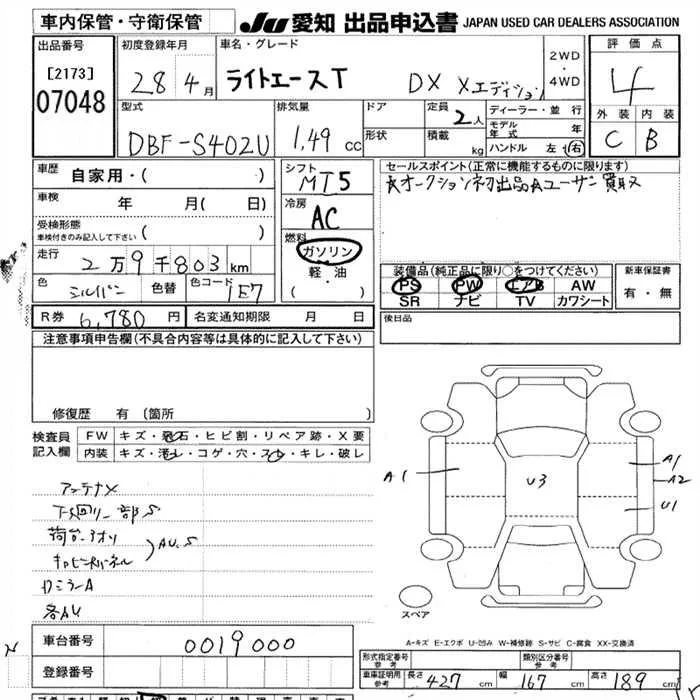 車内保管・守衛保管
JU 愛知 出品申込書 JAPAN USED CAR DEALERS ASSOCIATION
出品番号
[2173]
07048
初度登録年月
28年4月
車名・グレード
ライトエースT DX Xエディション
2WD
・
4WD
評価点
4
外装 内装
C B
型式
DBF-S402U
排気量
1.49 cc
ドア
形状
定員
2人
積載 kg
ディーラー・並行
モデル年式 年
ハンドル 左・右
車歴
自家用・( )
車検 年 月( 日)
受検形態
車検付きのみ記入して下さい ( )
走行
2万9千803km
色
シルバー
色替
色コード
1E7
シフト
MT5
冷房
AC
燃料
ガソリン
軽・油
( )
セールスポイント(正常に機能するものに限ります)
オークション初出品 ユーザー買取
装備品(純正品に限り○をつけてください)
PS PW エアB AW
SR ナビ TV カワシート
新車保証書
有・無
R券 6,780円 名変通知期限 月 日
後日品
注意事項申告欄(不具合内容等は具体的に記入して下さい)
修復歴 有(箇所
検査員記入欄
FW キズ・飛石・ヒビ割・リペア跡・X要
内装 キズ・汚レ・コゲ・穴・スレ・キレ・破レ
アンテナX
下廻リ一部S
荷台、アオリ
AU.S
カミラーA
各AU
A1
U3
A1
A2
U1
スペア
A-キズ E-エクボ U-凹み W-補修跡 S-サビ C-腐食 XX-交換済
車台番号 0019000
登録番号
形式指定番号 参考
類別区分番号 参考
車庫証明用 参考 長さ 427cm 幅 167cm 高さ 189cm